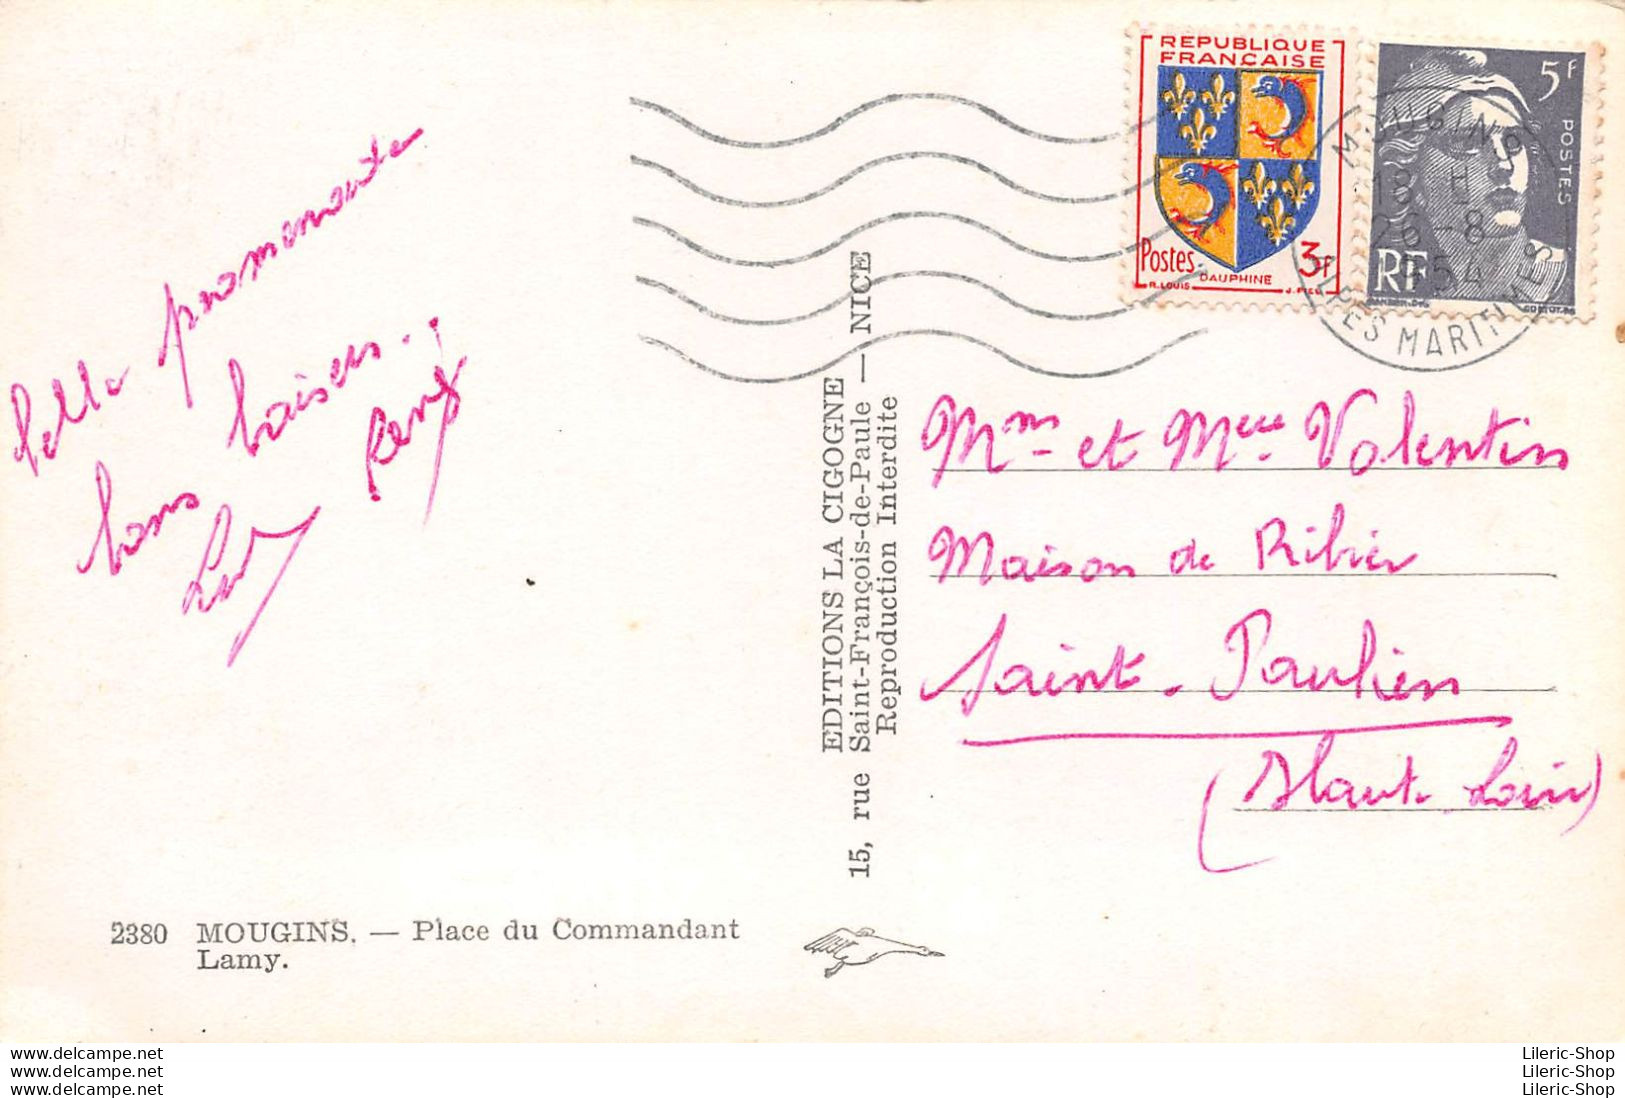 belle promenade
bons baisers.
REPUBLIQUE
FRANÇAISE
Postes
3F
DAUPHINE
R. LOUIS
5F
POSTES
RF
MOUGINS
18 H
26 -8
1954
ALPES MARITIMES
EDITIONS LA CIGOGNE
15, rue Saint-François-de-Paule — NICE
Reproduction Interdite
Mm et Mme Valentin
Maison de Ribier
Saint-Paulien
(Haute Loire)
2380 MOUGINS. — Place du Commandant
Lamy.
www.delcampe.net
www.delcampe.net
www.delcampe.net
Lileric-Shop
Lileric-Shop
Lileric-Shop